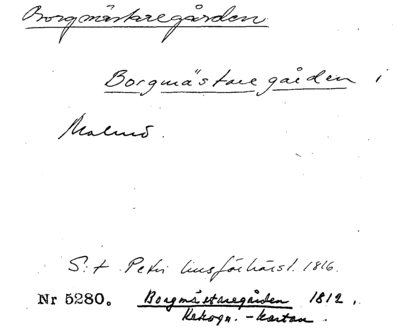 Borgmästaregården
Borgmästaregården i
Malmö.
S:t Petri husförhörsl. 1816.
Nr 5280. Borgmästaregården 1812,
Rekogn.-kartan.